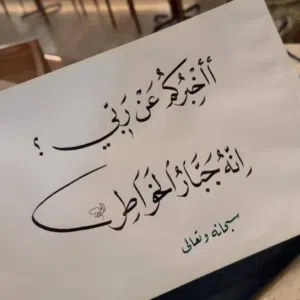 أأخبركم عن ربّي ؟
إنّهُ جَبّارُ الخَواطِر
سبحانه وتعالى